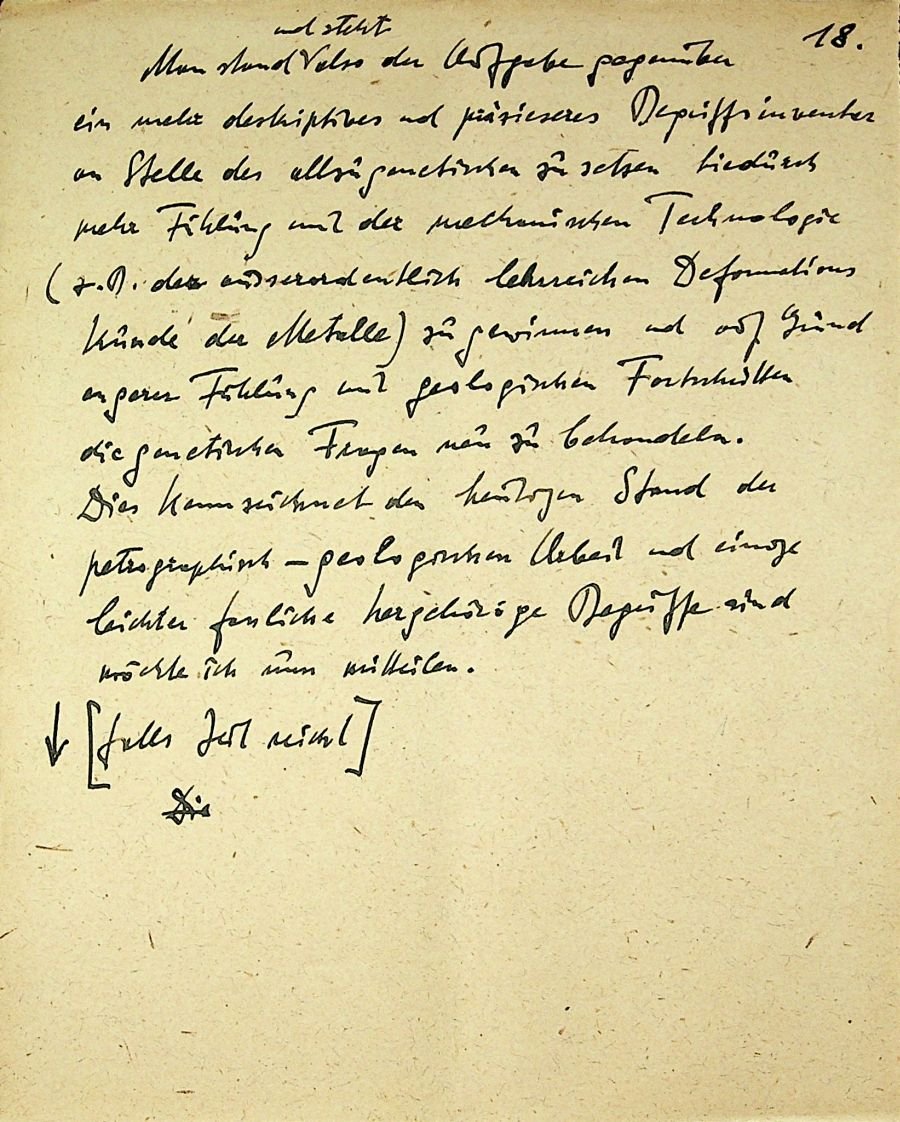 18.
und steht
Man stand also der Aufgabe gegenüber
ein mehr deskriptives und präziseres Begriffsinventar
an Stelle des allzugenetischen zu setzen hiedurch
mehr Fühlung mit der mechanischen Technologie
(z.B. der ausserordentlich lehrreichen Deformations
kunde der Metalle) zu gewinnen und auf Grund
engerer Fühlung mit geologischen Fortschritten
die genetischen Fragen neu zu behandeln.
Dies kennzeichnet den heutigen Stand der
petrographisch-geologischen Arbeit und einige
leichter fassliche hergehörige Begriffe
möchte ich nun mitteilen.
↓ [falls Zeit reicht]
Die